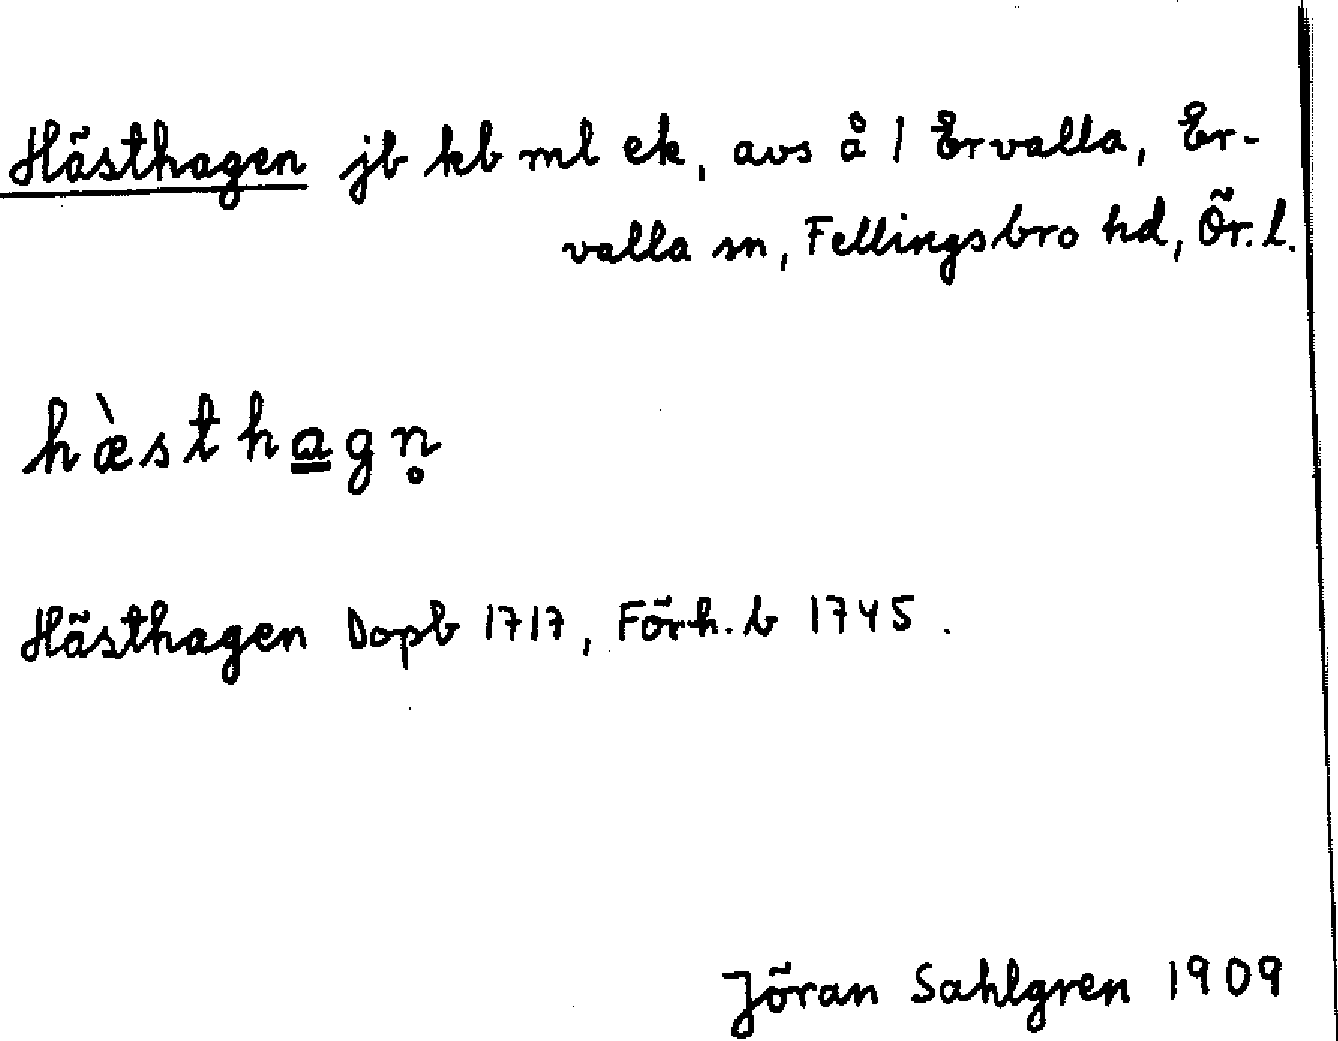 Hästhagen jb kb ml ek, avs å 1 Ervalla, Er-
valla sn, Fellingsbro hd, Ör. l.
hæ̀sthagn̥
Hästhagen Dopb 1717, Förh. b 1745.
Jöran Sahlgren 1909